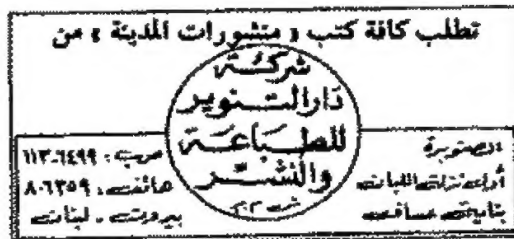 تطلب كافة كتب « منشورات المدينة » من
شركة
دار التنوير
للطباعة
والنشر
ش.م.م
الصنوبرة
أول نزلة اللبان
بناية عساف
ص.ب: ٦٤٩٩-١١٣
هاتف: ٨٠٦٣٥٩
بيروت ـ لبنان